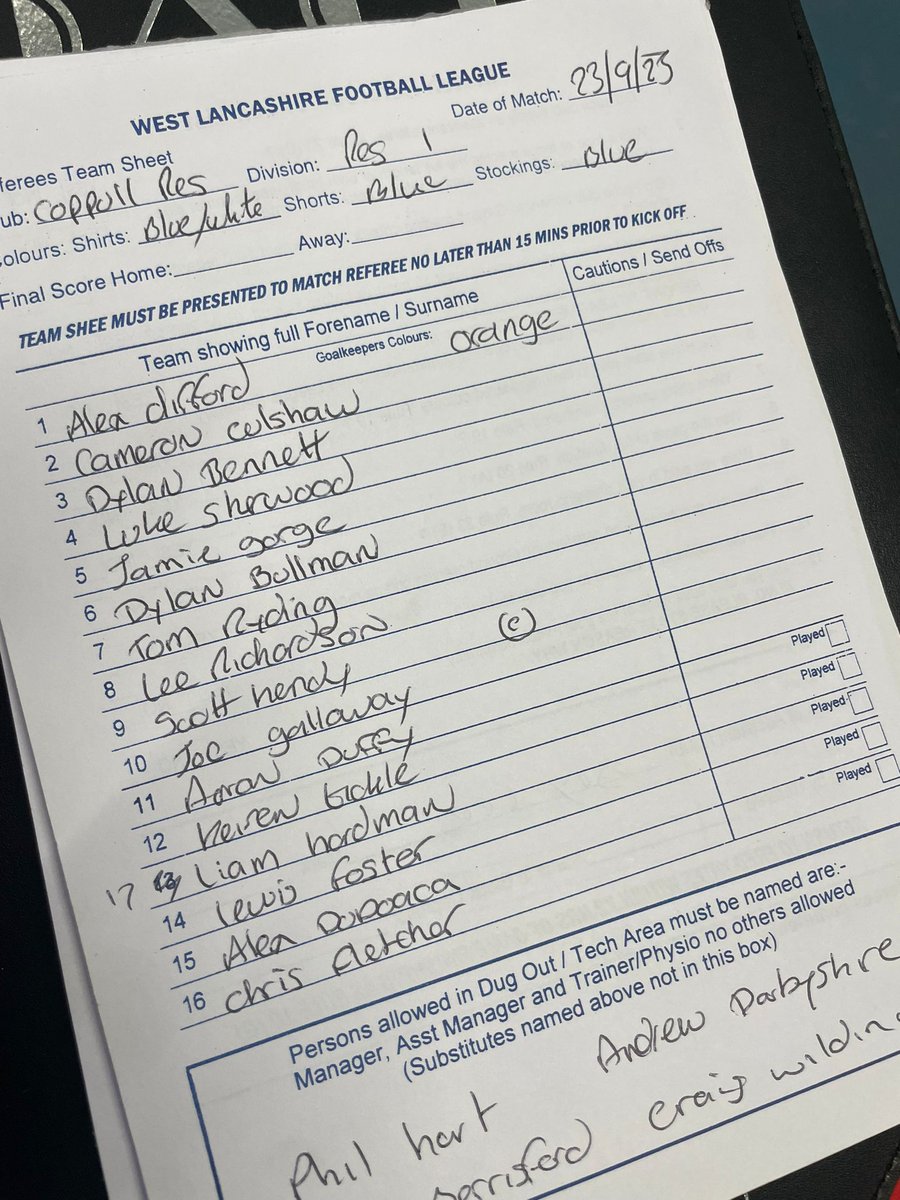 WEST LANCASHIRE FOOTBALL LEAGUE
ferees Team Sheet Division: Res 1 Date of Match: 23/9/23
ub: Coppull Res
olours: Shirts: Blue/white Shorts: Blue Stockings: Blue
Final Score Home: Away:
TEAM SHEE MUST BE PRESENTED TO MATCH REFEREE NO LATER THAN 15 MINS PRIOR TO KICK OFF
Team showing full Forename / Surname Cautions / Send Offs
Goalkeepers Colours: orange
1 Alex clifford
2 Cameron culshaw
3 Dylan Bennett
4 Luke sherwood
5 Jamie gorge
6 Dylan Bullman
7 Tom Ryding
8 Lee Richardson (c)
9 Scott hendy
10 Joe galloway
11 Aaron Duffy
12 Keiren tickle Played
17 13 Liam hardman Played
14 lewis foster Played
15 Alex Played
16 Chris fletcher Played
Persons allowed in Dug Out / Tech Area must be named are:-
Manager, Asst Manager and Trainer/Physio no others allowed
(Substitutes named above not in this box)
Phil hart Andrew Darbyshire
craig wildin